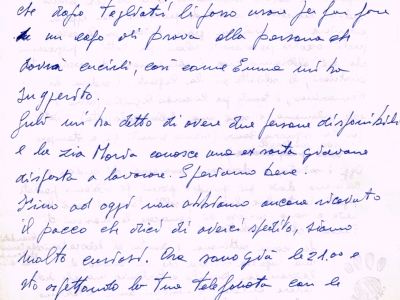 che dopo tagliati li posso usare per far fare
un capo di prova alla persona che
dovrà cucirli, così come Emma mi ha
suggerito.
mi ha detto di avere due persone disponibili
e la zia Maria conosce una ex sarta giovane
disposta a lavorare. Speriamo bene.
Fino ad oggi non abbiamo ancora ricevuto
il pacco che dici di averci spedito, siamo
molto curiosi. Ora sono già le 21.00 e
sto aspettando la tua telefonata con le